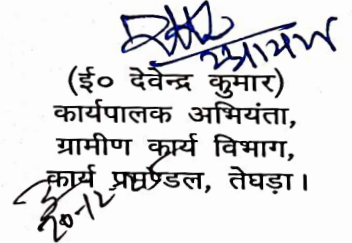 (ई० देवेन्द्र कुमार)
कार्यपालक अभियंता,
ग्रामीण कार्य विभाग,
कार्य प्रमण्डल, तेघड़ा।
20-12